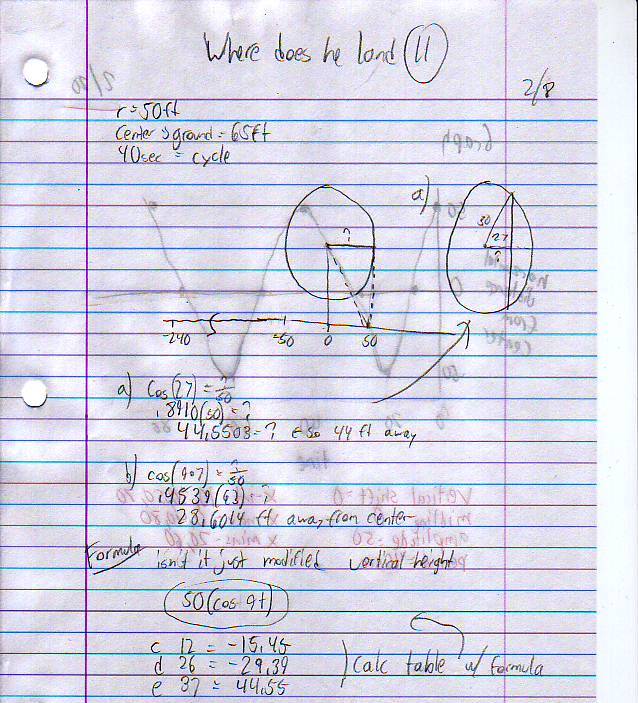 Where does he land 11
2/8
r = 50ft
Center → ground = 65ft
40sec = cycle
?
a)
50
27
?
-240 -50 0 50
a) Cos(27) = ?/50
.8910(50) = ?
44.5503 = ? ← So 44 ft away
b) cos(9·7) = ?/50
.4539(63) = ?
28.6014 ft away from center
Formula
isn't it just modified vertical height
50(cos 9t)
c 12 = -15.45
d 26 = -29.39
e 37 = 44.55
Calc table w/ formula